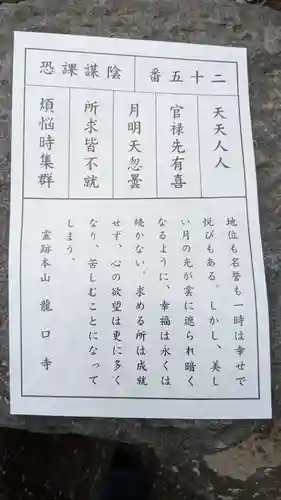 二十五番
陰謀課恐
天天人人
官禄先有喜
月明天忽曇
所求皆不就
煩悩時集群
地位も名誉も一時は幸せで
悦びもある。しかし、美し
い月の光が雲に遮られ暗く
なるように、幸福は永くは
続かない。求める所は成就
せず、心の欲望は更に多く
なり、苦しむことになって
しまう。
霊跡本山 龍口寺